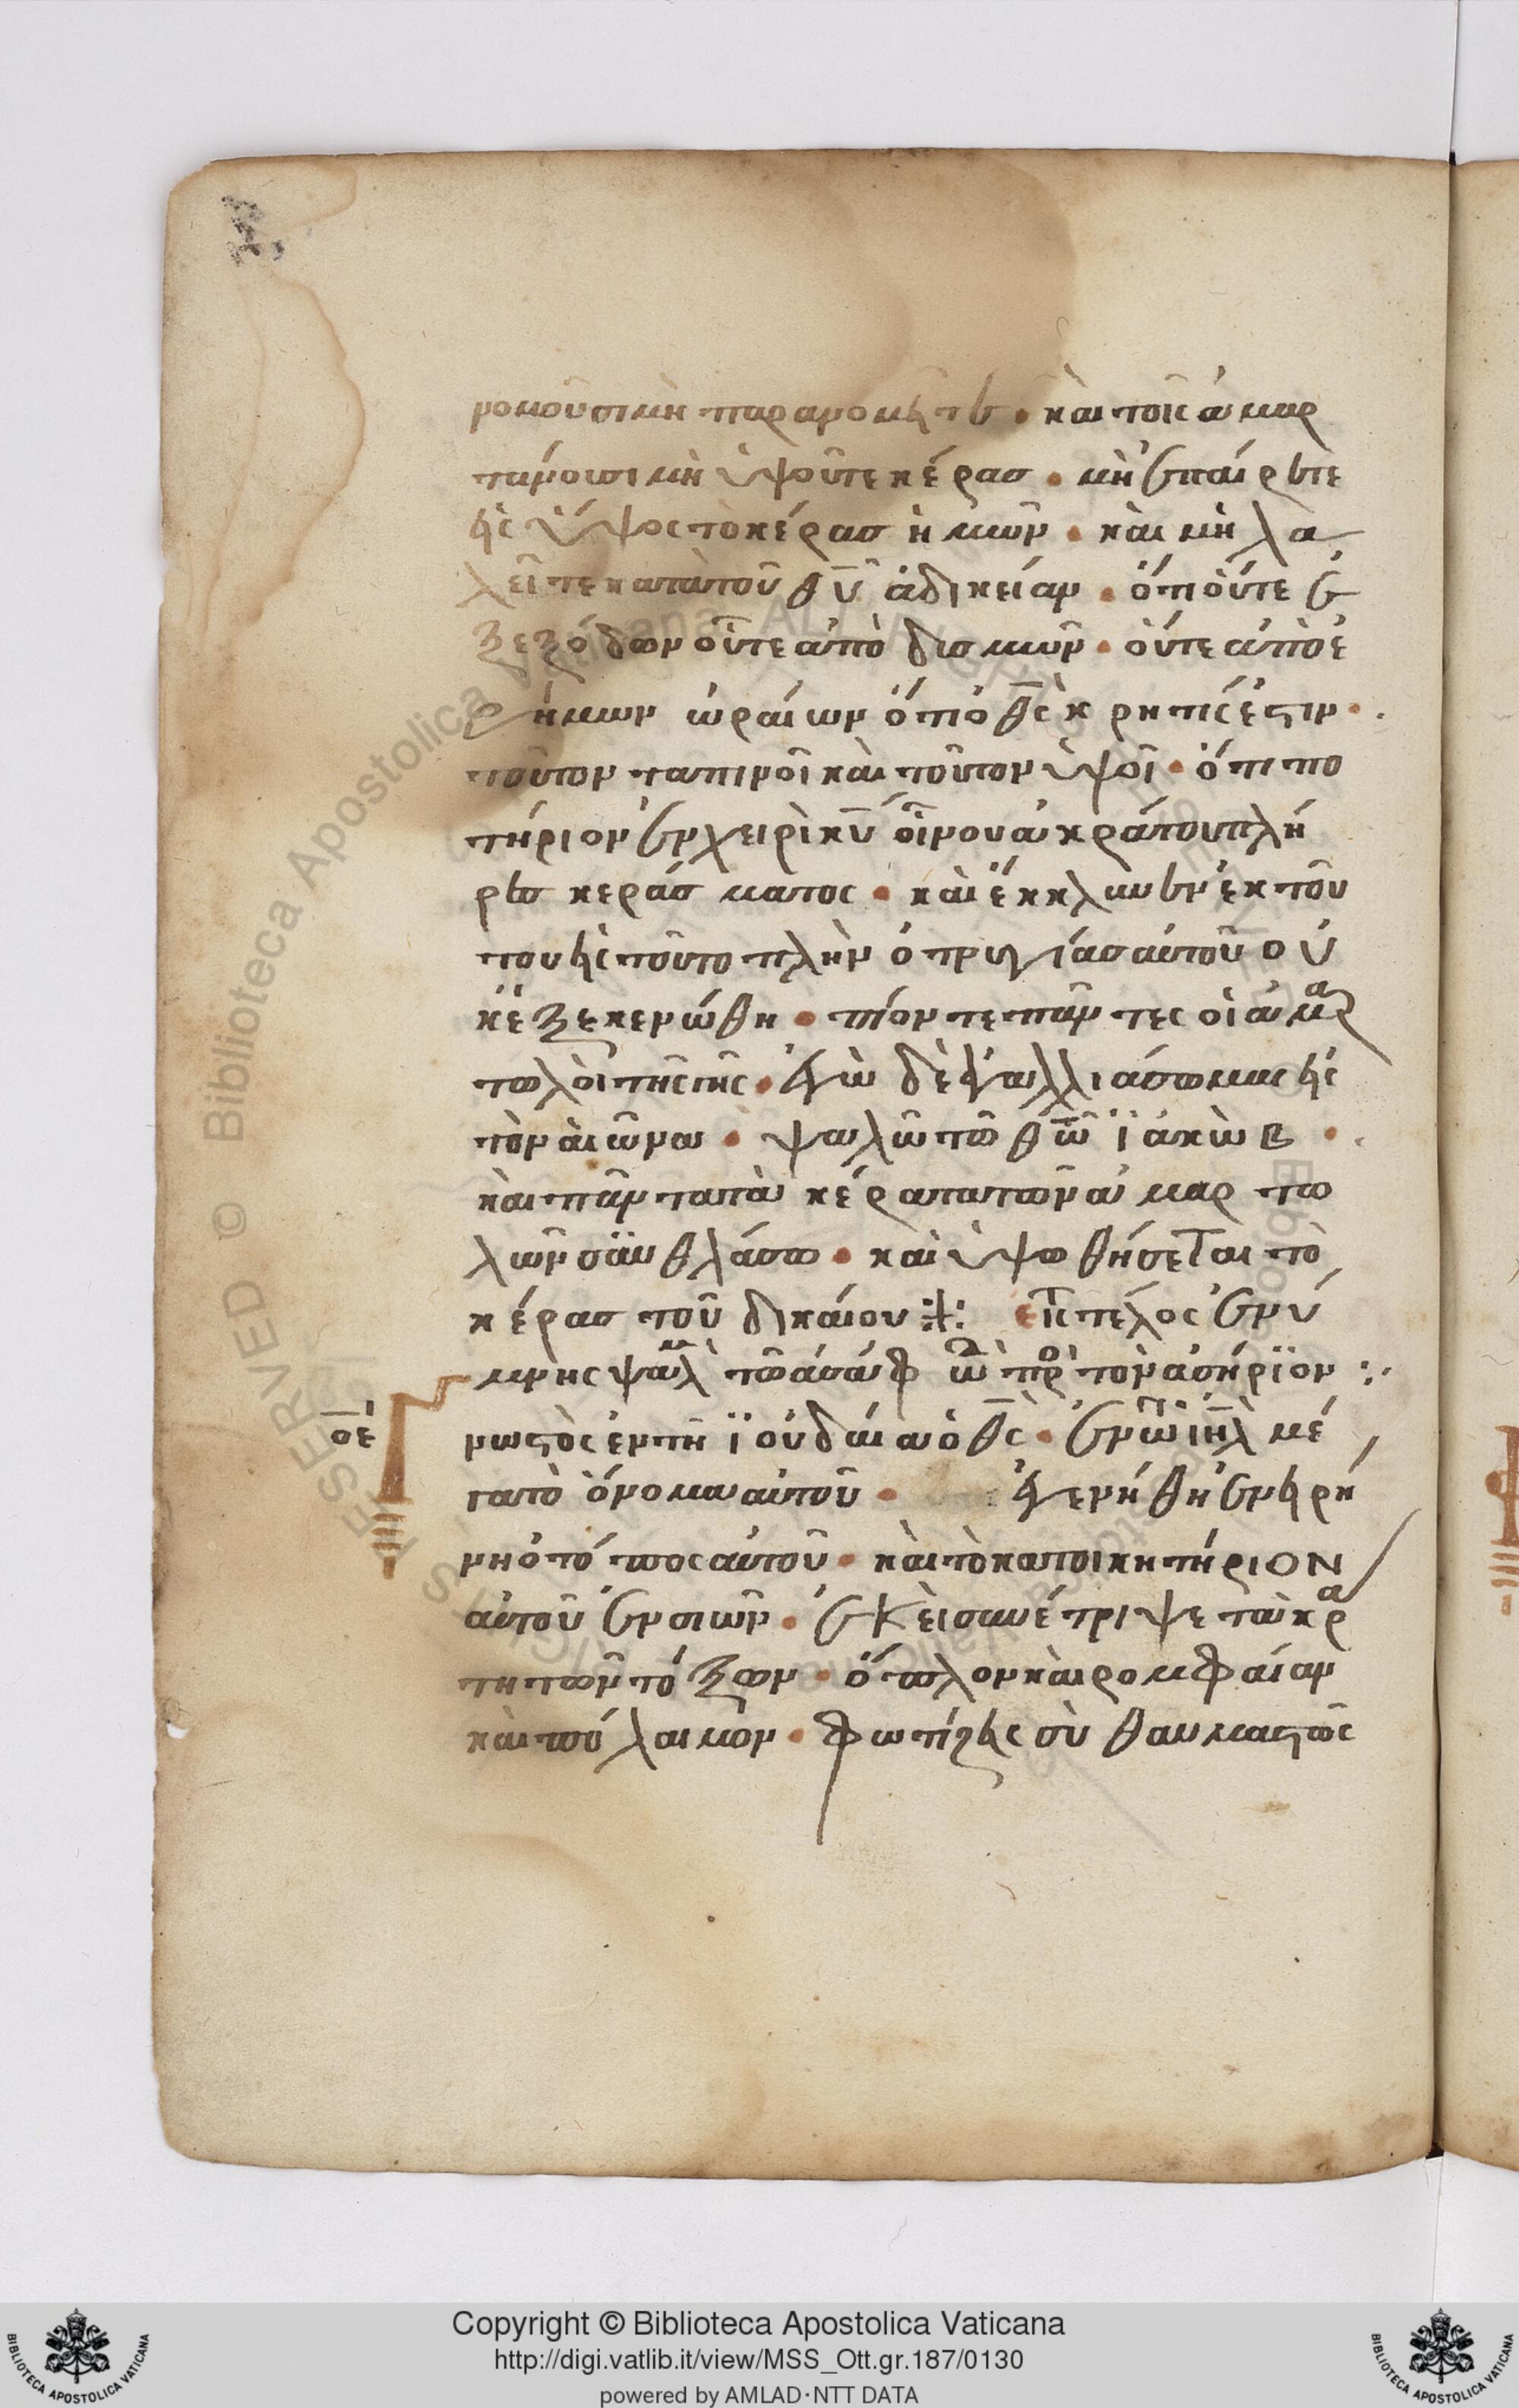 νομοῦσι μὴ παρανομεῖτε · καὶ τοῖς ἁμαρ
τάνουσι μὴ ὑψοῦτε κέρας · μὴ ἐπαίρετε
εἰς ὕψος τὸ κέρας ἡμῶν · καὶ μὴ λα
λεῖτε κατὰ τοῦ θῦ ἀδικείαν · ὅτι οὔτε ἐ
ξεξόδων οὔτε ἀπὸ δισμῶν · οὔτε ἀπὸ ἐ
ρήμων ὡραίων ὅτι ὁ θς κρητίς ἐστιν ·.
τοῦτον ταπινοῖ καὶ τοῦτον ὑψοῖ · ὅτι πο
τήριον ἐν χειρὶ κῦ οἴνου ἀκράτου πλή
ρες κεράσματος · καὶ ἔκκλινεν ἐκ τού
του εἰς τοῦτο πλὴν ὁ τρυγίας αὐτοῦ οὐ
κἐξεκενώθη · πίοντε πάντες οἱ ἁμαρ
τωλοὶ τῆς γῆς · ἐγὼ δὲ ἀγαλλιάσωμαι εἰς
τὸν αἰῶνα · ψαλῶ τῶ θῶ ἰακὼβ ·.
καὶ πάντα τὰ κέρατα τῶν ἁμαρτω
λῶν συνθλάσω · καὶ ὑψωθήσεται τὸ
κέρας τοῦ δικαίου ⁘ εἰς τέλος ἐν ὕ
μνης ψαλμ τῶ ἀσάφ ὠδ πρ τὸν ἀσήριον :·
οε
γνωστὸς ἐν τῆ ἰουδαία ὁ θς · ἐν τῶ ιηλ μέ
γα τὸ ὄνομα αὐτοῦ · ἐγενήθη ἐν εἰρή
νη ὁ τόπος αὐτοῦ · καὶ τὸ κατοικητήριον
αὐτοῦ ἐν σιών · ἐκεῖ συνέτριψε τὰ κρα
τη τῶν τόξων · ὅπλον καὶ ρομφαίαν
καὶ πόλαιμον · φωτίζεις σὺ θαυμαστῶς
Copyright © Biblioteca Apostolica Vaticana
http://digi.vatlib.it/view/MSS_Ott.gr.187/0130
powered by AMLAD·NTT DATA